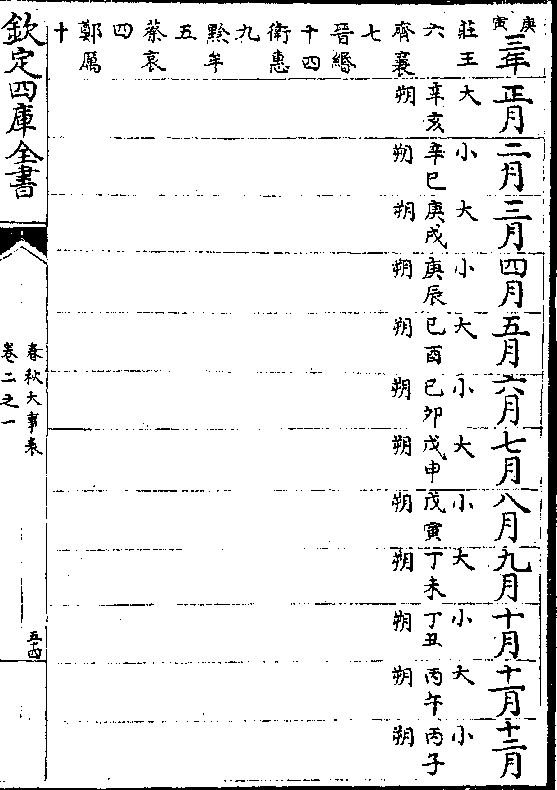 庚寅
三年
莊王
六
齊襄
七
晉緡
十四
衛惠
九
黔牟
五
蔡哀
四
鄭厲
十
正月
大
辛亥
朔
二月
小
辛巳
朔
三月
大
庚戌
朔
四月
小
庚辰
朔
五月
大
己酉
朔
六月
小
己卯
朔
七月
大
戊申
朔
八月
小
戊寅
朔
九月
大
丁未
朔
十月
小
丁丑
朔
十一月
大
丙午
朔
十二月
小
丙子
朔
欽定四庫全書
春秋大事表
卷二之一
五十四